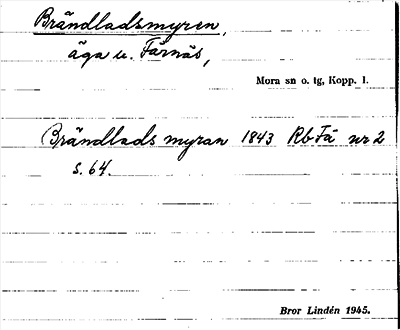 Brändladsmyren,
äga u. Färnäs,
Mora sn o. tg, Kopp. l.
Brändlads myran 1843 Rb Fä nr 2
s. 64.
Bror Lindén 1945.